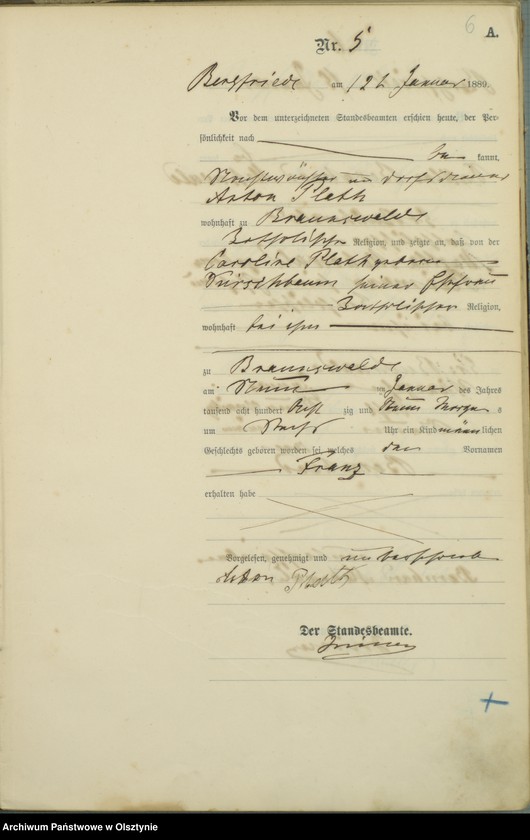 6
A.
Nr. 5
Bergfriede am 12 t Januar 1889.
Vor dem unterzeichneten Standesbeamten erschien heute, der Per-
sönlichkeit nach
be kannt,
Anton Plath
wohnhaft zu Braunswalde
Katholischer Religion, und zeigte an, daß von der
Caroline Plath geborene
Kirschbaum seiner Ehefrau
Katholischer Religion,
wohnhaft bei ihm
zu Braunswalde
am Neun ten Januar des Jahres
tausend acht hundert Acht zig und Neun Morgen s
um Uhr ein Kind männlichen
Geschlechts geboren worden sei, welches den Vornamen
Franz
erhalten habe
Vorgelesen, genehmigt und unterschrieben
Anton Plath
Der Standesbeamte.
Archiwum Państwowe w Olsztynie